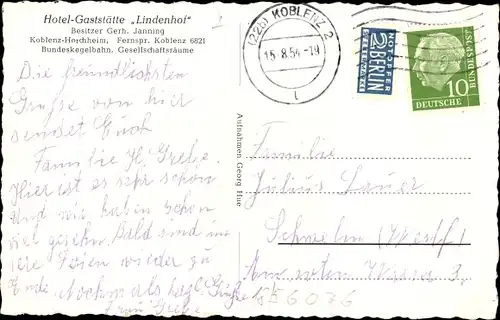 Hotel-Gaststätte „Lindenhof"
Besitzer Gerh. Janning
Koblenz-Horchheim, Fernspr. Koblenz 6821
Bundeskegelbahn. Gesellschaftsräume
Die freundlichsten
Grüße von hier
sendet Euch
Familie H. Grebe.
Hier ist es sehr schön
und wir haben schon
viel gesehn. Bald sind un
sere Ferien wieder zu
Ende. Nochmals herzl. Grüße
Frau Grebe
Aufnahmen Georg Hue
(22b) KOBLENZ 2
15.8.54-19
NOTOPFER
2 BERLIN
STEUERMARKE
DEUTSCHE
BUNDESPOST
10
Familie
Julius Lauer
Schwelm (Westf)
Am roten Wasser
GE6076